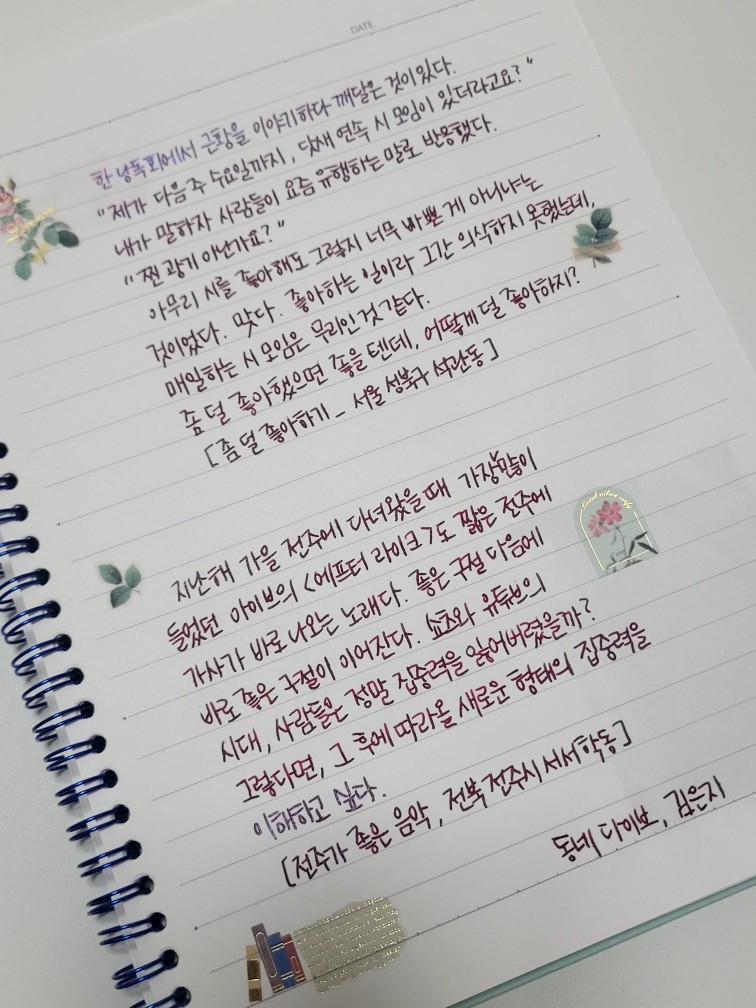 DATE
한 낭독회에서 근황을 이야기하다 깨달은 것이 있다.
"제가 다음 주 수요일까지, 닷새 연속 시 모임이 있더라고요?"
내가 말하자 사람들이 요즘 유행하는 말로 반응했다.
"찐 광기 아닌가요?"
아무리 시를 좋아해도 그렇지 너무 바쁜 게 아니냐는
것이었다. 맞다. 좋아하는 일이라 그간 의식하지 못했는데,
매일하는 시 모임은 무리인 것 같다.
좀 덜 좋아했으면 좋을 텐데, 어떻게 덜 좋아하지?
[좀 덜 좋아하기 - 서울 성북구 석관동]
지난해 가을 전주에 다녀왔을 때 가장 많이
들었던 아이브의 <애프터 라이크>도 짧은 전주에
가사가 바로 나오는 노래다. 좋은 구절 다음에
바로 좋은 구절이 이어진다. 쇼츠와 유튜브의
시대, 사람들은 정말 집중력을 잃어버렸을까?
그렇다면, 그 후에 따라올 새로운 형태의 집중력을
이해하고 싶다.
[전주가 좋은 음악, 전북 전주시 서서학동]
동네 다이브, 김은지
Good vibes only